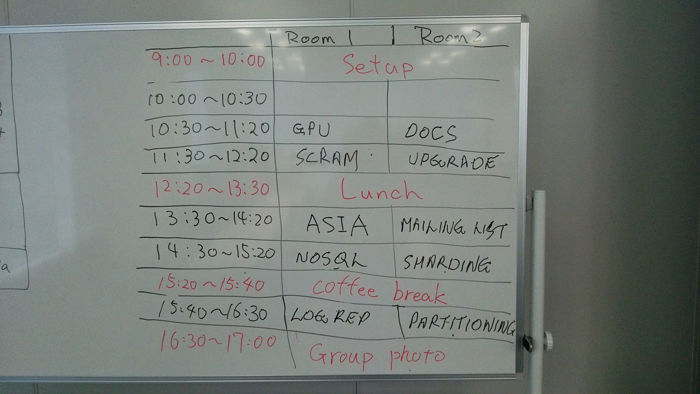 Room 1 | Room 2
9:00~10:00 Setup
10:00~10:30
10:30~11:20 GPU DOCS
11:30~12:20 SCRAM UPGRADE
12:20~13:30 Lunch
13:30~14:20 ASIA MAILING LIST
14:30~15:20 NOSQL SHARDING
15:20~15:40 coffee break
15:40~16:30 LOG REP PARTITIONING
16:30~17:00 Group photo